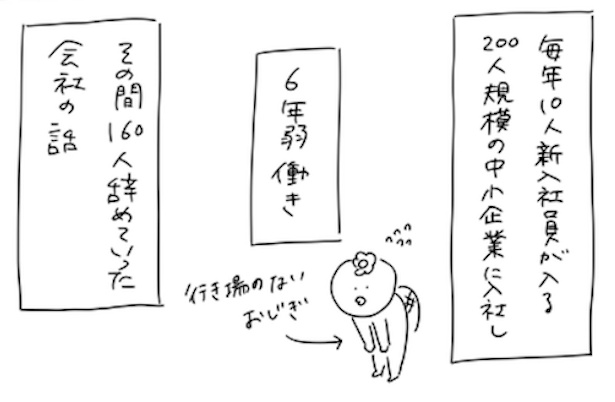 毎年10人新入社員が入る
200人規模の中小企業に入社し
6年弱働き
行き場のない
おじぎ
その間160人辞めていった
会社の話